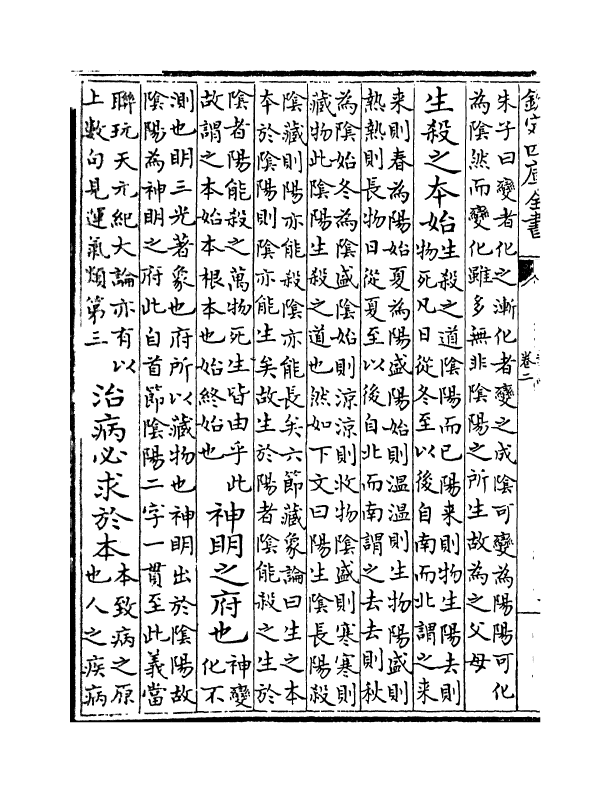 欽定四庫全書
卷二
朱子曰變者化之漸化者變之成陰可變為陽陽可化
為陰然而變化雖多無非陰陽之所生故為之父母
生殺之本始
生殺之道陰陽而已陽来則物生陽去則
物死凡日從冬至以後自南而北謂之来
来則春為陽始夏為陽盛陽始則温温則生物陽盛則
熱熱則長物日從夏至以後自北而南謂之去去則秋
為陰始冬為陰盛陰始則涼涼則收物陰盛則寒寒則
藏物此陰陽生殺之道也然如下文曰陽生陰長陽殺
陰藏則陽亦能殺陰亦能長矣六節藏象論曰生之本
本於陰陽則陰亦能生矣故生於陽者陰能殺之生於
陰者陽能殺之萬物死生皆由乎此
故謂之本始本根本也始終始也
神明之府也
神變
化不
測也明三光著象也府所以藏物也神明出於陰陽故
陰陽為神明之府此自首節陰陽二字一貫至此義當
聯玩天元紀大論亦有以
上數句見運氣類第三
治病必求於本
本致病之原
也人之疾病